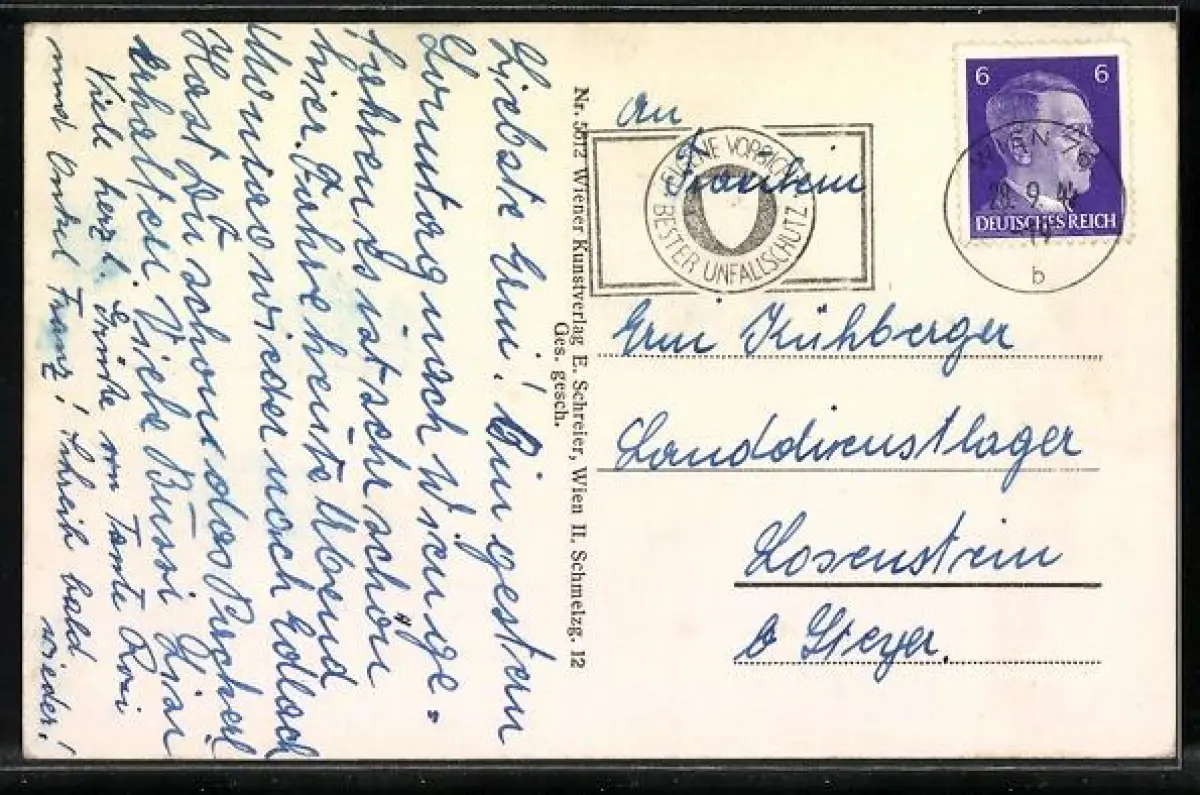 Liebste Erni! Bin gestern
Sonntag nach Wien ge-
fahren, es ist sehr schön
hier. Fahre heute Abend
Montag wieder nach Edlach
Hast Du schon das Packerl
erhalten. Viele Bussi
Viele herzl. Grüße von Tante Rosi
und Onkel Franz! Schreib bald
wieder!
Nr. 5612 Wiener Kunstverlag E. Schreier, Wien II. Schmelzg. 12
Ges. gesch.
An
Fräulein
Erni Kühberger
Landdienstlager
Losenstein
b Steyer.
EIGENE VORSICHT
BESTER UNFALLSCHUTZ
6 6
DEUTSCHES REICH
WIEN
b